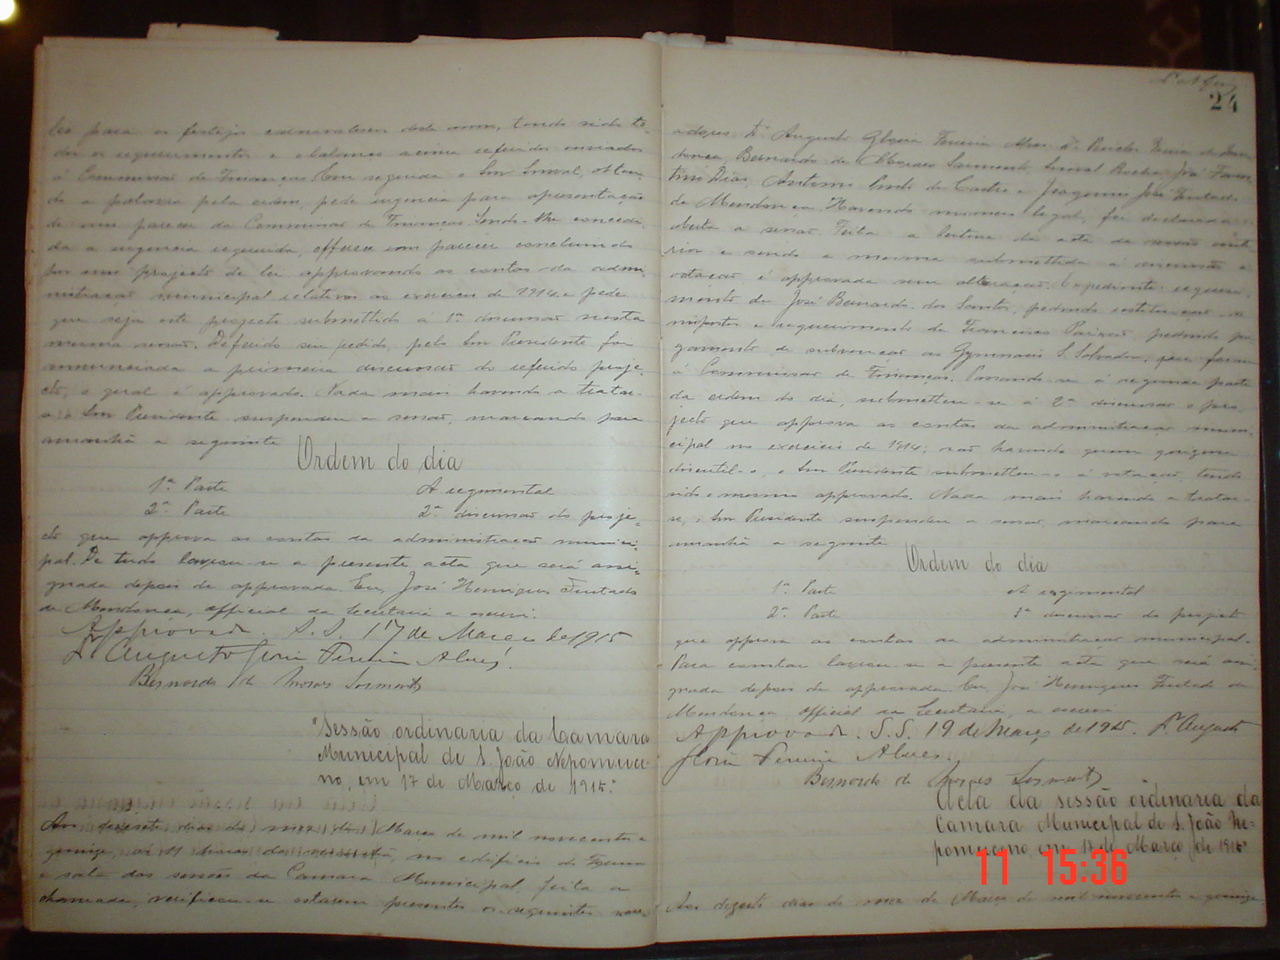 les para os festejos carnavalescos deste anno, tendo sido to-
dos os requerimentos e balanços acima referidos enviados
á Commissão de Finanças. Em seguida o Snr Lourival, obten-
do a palavra pela ordem, pede urgencia para apresentação
de um parecer da Commissão de Finanças. Sendo-lhe concedi-
da a urgencia requerida, offerece um parecer concluindo
por um projecto de lei approvando as contas da admi-
nistração municipal relativas ao exercicio de 1914 e pede
que seja este projecto submettido á 1ª discussão nesta
mesma sessão. Deferido seu pedido, pelo Snr Presidente foi
annunciada a primeira discussão do referido proje-
cto, e geral é approvado. Nada mais havendo a tratar-
se o Snr Presidente suspendeu a sessão, marcando para
amanhã a seguinte
Ordem do dia
1ª Parte A regimental
2ª Parte 2ª discussão do proje-
cto que approva as contas da administração munici-
pal. De tudo lavrou-se a presente acta que será assi-
gnada depois de approvada. Eu, José Henriques Furtado
de Mendonça, official da Secretaria a escrevi.
Approvada. S. S. 17 de Março de 1915
Dr Augusto Gloria Ferreira Alves.
Bernardo de Moraes Sarmento
"Sessão ordinaria da Camara
Municipal de S. João Nepomuce-
no, em 17 de Março de 1915."
Aos dezesete dias do mez de Março de mil novecentos e
quinze, ás 11 horas da no edificio do Forum
e sala das sessões da Camara Municipal, feita a
chamada, verificou-se estarem presentes os seguintes verea-
24
adores: Dr Augusto Gloria Ferreira Alves, Dr Pericles de Men-
donça, Bernardo de Moraes Sarmento, Rocha, José
Dias, Antonio de Castro e Joaquim José Furtado
de Mendonça. Havendo numero legal, foi declarada
aberta a sessão. Feita a leitura da acta da sessão ante-
rior e sendo a mesma submettida á discussão e
votação é approvada sem alteração. Expediente: requeri-
mento de José Bernardo dos Santos, pedindo restituição de
impostos e requerimento de Francisco pedindo pa-
gamento de subvenção ao Gymnasio S. Salvador, que foram
á Commissão de Finanças. Passando-se á segunda parte
da ordem do dia, submetteu-se á 2ª discussão o pro-
jecto que approva as contas da administração muni-
cipal no exercicio de 1914; não havendo quem quizesse
discutil-o, o Snr Presidente submetteu-o á votação, tendo
sido o mesmo approvado. Nada mais havendo a tratar-
se, o Snr Presidente suspendeu a sessão, marcando para
amanhã a seguinte
Ordem do dia
1ª Parte A regimental
2ª Parte 3ª discussão do projecto
que approva as contas da administração municipal.
Para constar lavrou-se a presente acta que será assi-
gnada depois de approvada. Eu, José Henriques Furtado de
Mendonça, official da Secretaria, a escrevi
Approvada. S. S. 19 de Março de 1915. Dr Augusto
Gloria Ferreira Alves.
Bernardo de Moraes Sarmento
Acta da sessão ordinaria da
Camara Municipal de S. João Ne-
pomuceno, em de Março de 1915"
Aos dias do mez de Março de mil novecentos e quinze,
11 15:36